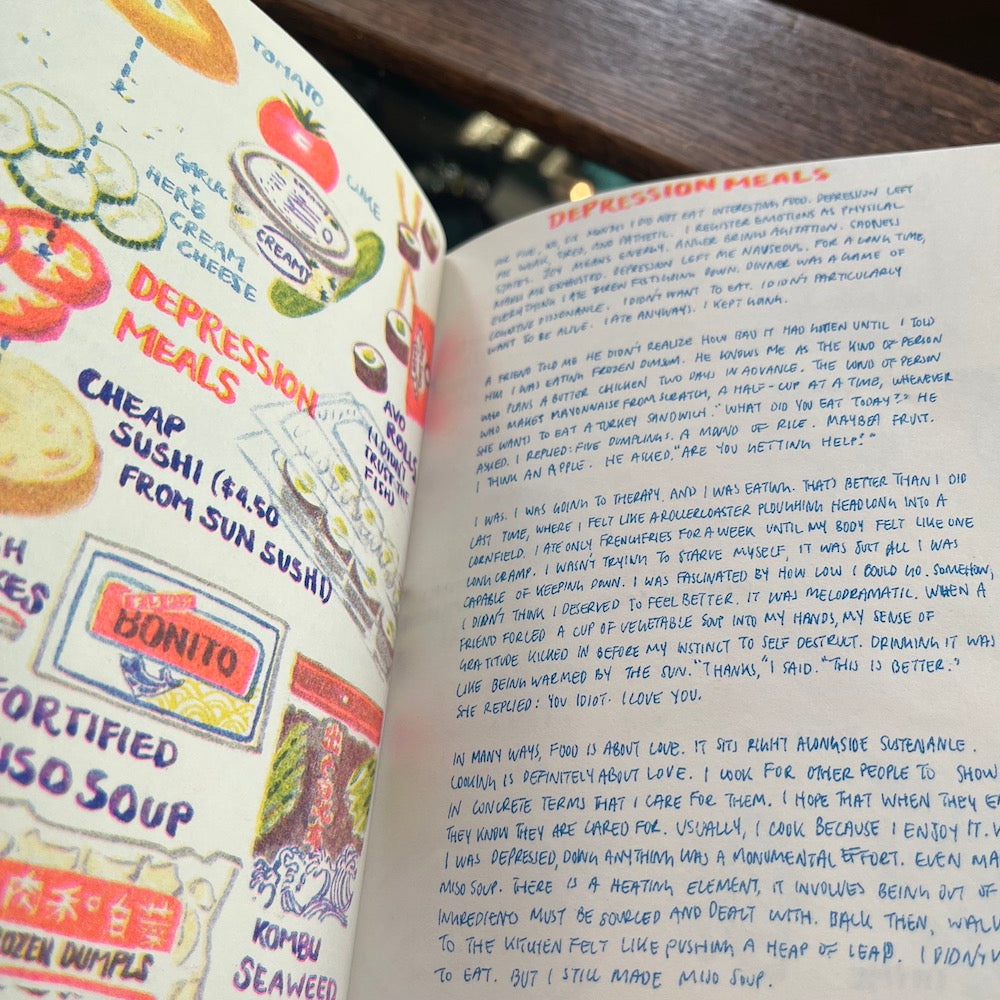 TOMATO
GARLIC
+
HERB
CREAM
CHEESE
CREAMY
CUKE
DEPRESSION
MEALS
CHEAP
SUSHI ($4.50
FROM SUN SUSHI)
AVO
ROLLS
(I DIDN'T
TRUST THE
FISH)
BONITO
ORTIFIED
ISO SOUP
肉禾口白菜
ROZEN DUMPLS
KOMBU
SEAWEED
DEPRESSION MEALS
FOR FIVE, NO, SIX MONTHS I DID NOT EAT INTERESTING FOOD. DEPRESSION LEFT
ME WEAK, TIRED, AND PATHETIC. I REGISTER EMOTIONS AS PHYSICAL
STATES. JOY MEANS ENERGY. ANGER BRINGS AGITATION. SADNESS
MAKES ME EXHAUSTED. DEPRESSION LEFT ME NAUSEOUS. FOR A LONG TIME,
EVERYTHING I ATE DOWN. DINNER WAS A GAME OF
COGNITIVE DISSONANCE. I DIDN'T WANT TO EAT. I DIDN'T PARTICULARLY
WANT TO BE ALIVE. I ATE ANYWAYS. I KEPT GOING.
A FRIEND TOLD ME HE DIDN'T REALIZE HOW BAD IT HAD GOTTEN UNTIL I TOLD
HIM I WAS EATING FROZEN DIMSUM. HE KNOWS ME AS THE KIND OF PERSON
WHO PLANS A BUTTER CHICKEN TWO DAYS IN ADVANCE. THE KIND OF PERSON
WHO MAKES MAYONNAISE FROM SCRATCH, A HALF-CUP AT A TIME, WHENEVER
SHE WANTS TO EAT A TURKEY SANDWICH. "WHAT DID YOU EAT TODAY?" HE
ASKED. I REPLIED: FIVE DUMPLINGS. A MOUND OF RICE. MAYBE A FRUIT.
I THINK AN APPLE. HE ASKED, "ARE YOU GETTING HELP?"
I WAS. I WAS GOING TO THERAPY, AND I WAS EATING. THAT'S BETTER THAN I DID
LAST TIME, WHERE I FELT LIKE A ROLLERCOASTER PLOUGHING HEADLONG INTO A
CORNFIELD. I ATE ONLY FRENCH FRIES FOR A WEEK UNTIL MY BODY FELT LIKE ONE
LONG CRAMP. I WASN'T TRYING TO STARVE MYSELF, IT WAS JUST ALL I WAS
CAPABLE OF KEEPING DOWN. I WAS FASCINATED BY HOW LOW I COULD GO. SOMEHOW,
I DIDN'T THINK I DESERVED TO FEEL BETTER. IT WAS MELODRAMATIC. WHEN A
FRIEND FORCED A CUP OF VEGETABLE SOUP INTO MY HANDS, MY SENSE OF
GRATITUDE KICKED IN BEFORE MY INSTINCT TO SELF DESTRUCT. DRINKING IT WAS
LIKE BEING WARMED BY THE SUN. "THANKS," I SAID. "THIS IS BETTER."
SHE REPLIED: YOU IDIOT. I LOVE YOU.
IN MANY WAYS, FOOD IS ABOUT LOVE. IT SITS RIGHT ALONGSIDE SUSTENANCE.
COOKING IS DEFINITELY ABOUT LOVE. I COOK FOR OTHER PEOPLE TO SHOW
IN CONCRETE TERMS THAT I CARE FOR THEM. I HOPE THAT WHEN THEY EA
THEY KNOW THEY ARE CARED FOR. USUALLY, I COOK BECAUSE I ENJOY IT. W
I WAS DEPRESSED, DOING ANYTHING WAS A MONUMENTAL EFFORT. EVEN MA
MISO SOUP. THERE IS A HEATING ELEMENT, IT INVOLVES BEING OUT OF
INGREDIENTS MUST BE SOURCED AND DEALT WITH. BACK THEN, WALK
TO THE KITCHEN FELT LIKE PUSHING A HEAP OF LEAD. I DIDN'T W
TO EAT. BUT I STILL MADE MISO SOUP.